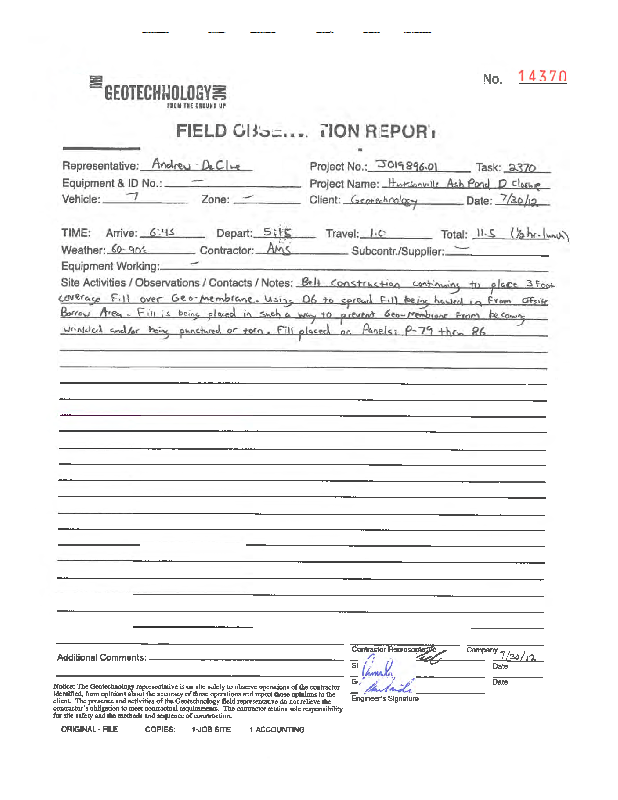 No. 14370
GEOTECHNOLOGY
FROM THE GROUND UP
FIELD REPORT
Representative: Andrew DeClue Project No.: J019896.01 Task: 2370
Equipment & ID No.: — Project Name: Hutsonville Ash Pond D Closure
Vehicle: 7 Zone: — Client: Geotechnology Date: 7/20/12
TIME: Arrive: 6:45 Depart: Travel: 1.0 Total: 11.5 (½ hr. lunch)
Weather: 60-90s Contractor: AMS Subcontr./Supplier: —
Equipment Working: —
Site Activities / Observations / Contacts / Notes: Belt Construction continuing to place 3 Foot
coverage Fill over Geo-Membrane. Using D6 to spread Fill being hauled in From Offsite
Borrow Area. Fill is being placed in such a way to prevent Geo-Membrane From becoming
wrinkled and/or being punctured or torn. Fill placed on Panels: P-79 thru 86
Contractor Representative Company 7/20/12
Additional Comments:
Date
Date
Engineer's Signature
Notice: The Geotechnology representative is on site solely to observe operations of the contractor
identified, form opinions about the accuracy of those operations and report those opinions to the
client. The presence and activities of the Geotechnology field representative do not relieve the
contractor's obligation to meet contractual requirements. The contractor retains sole responsibility
for site safety and the methods and sequence of construction.
ORIGINAL - FILE COPIES: 1-JOB SITE 1 ACCOUNTING